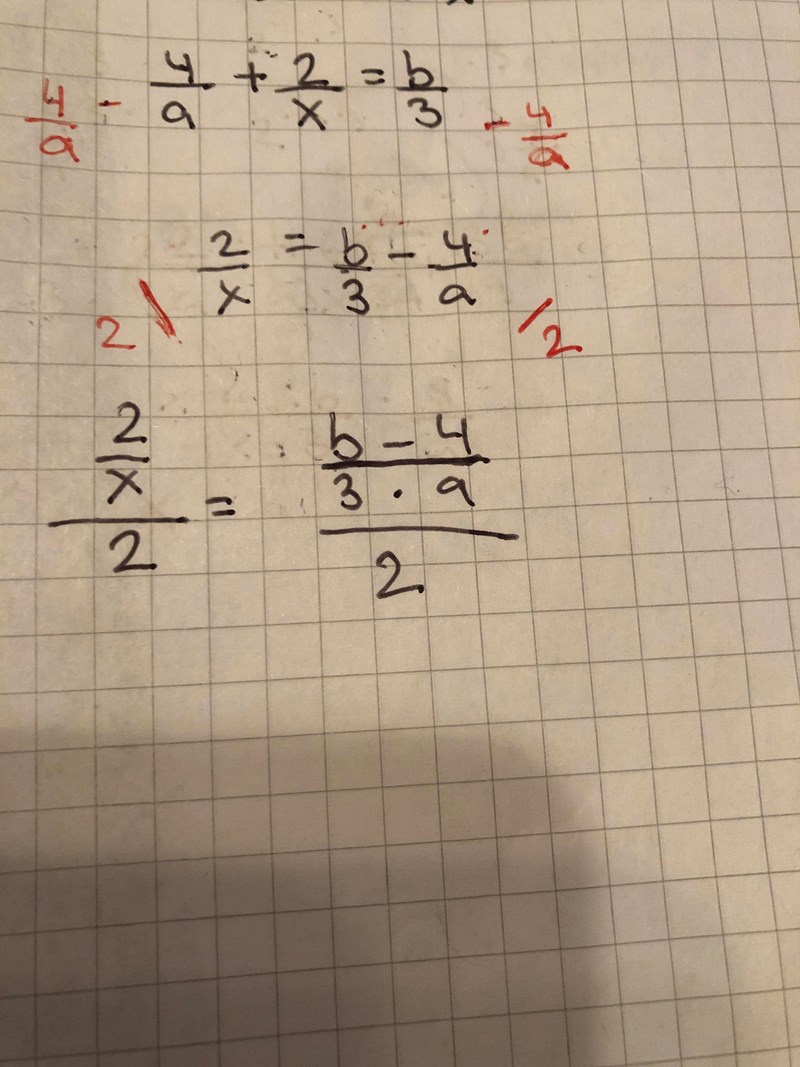 4/a - 4/a + 2/x = b/3 - 4/a
2/x = b/3 - 4/a
2 / /2
2/x / 2 = b - 4 / 3 · a / 2